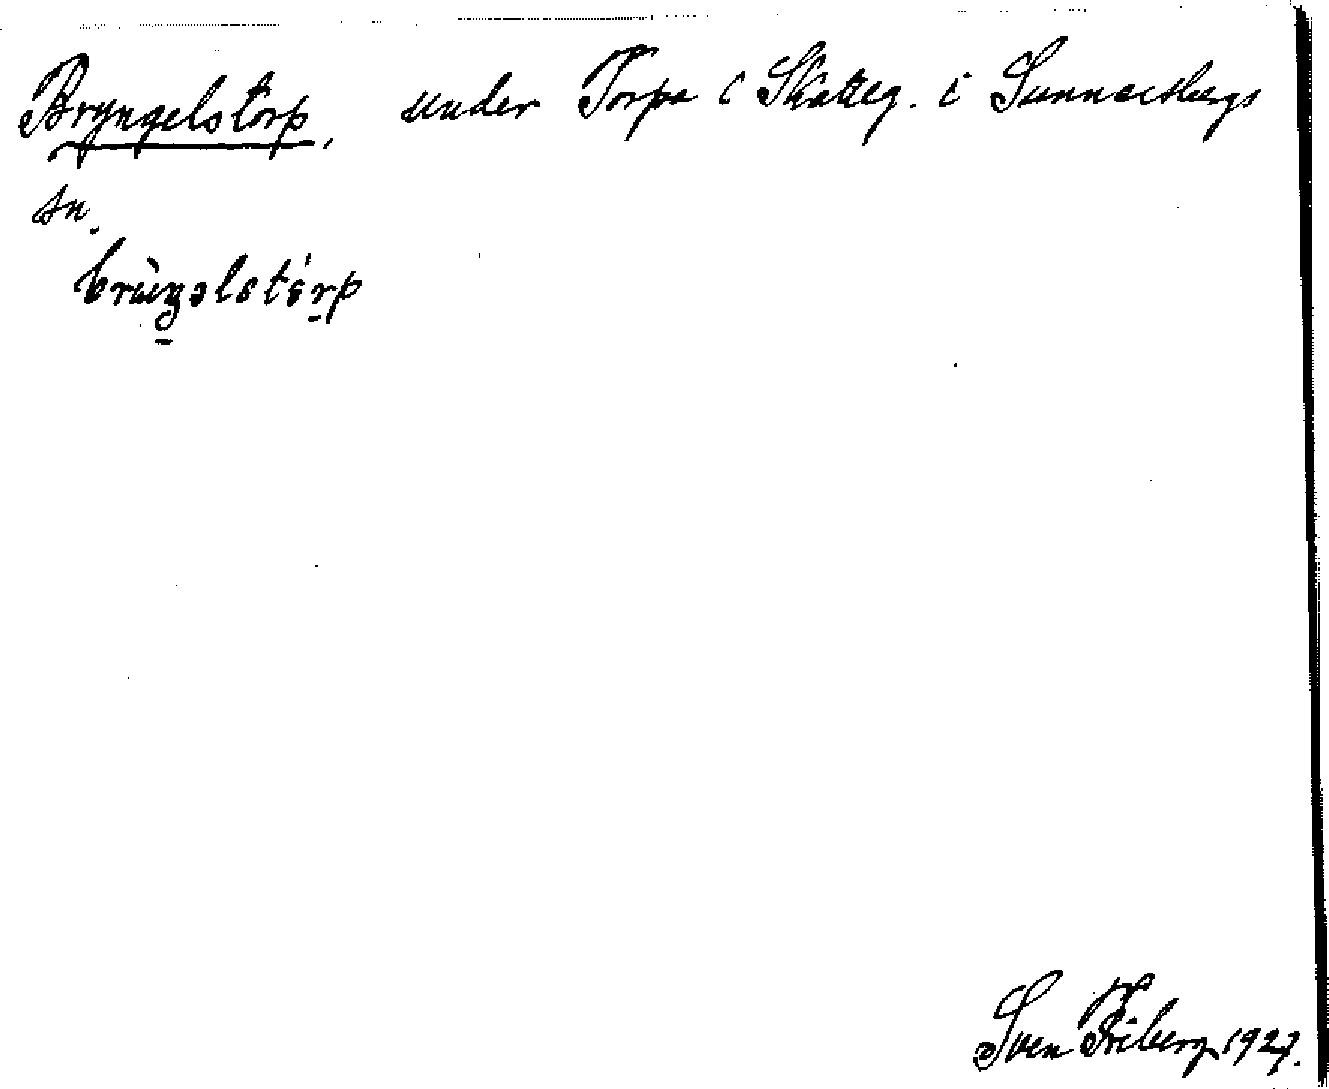 Bryngelstorp, under Torpa i Skatteg. i Sunnersbergs
sn.
brùŋəlstórp
Sven Friberg 1927.